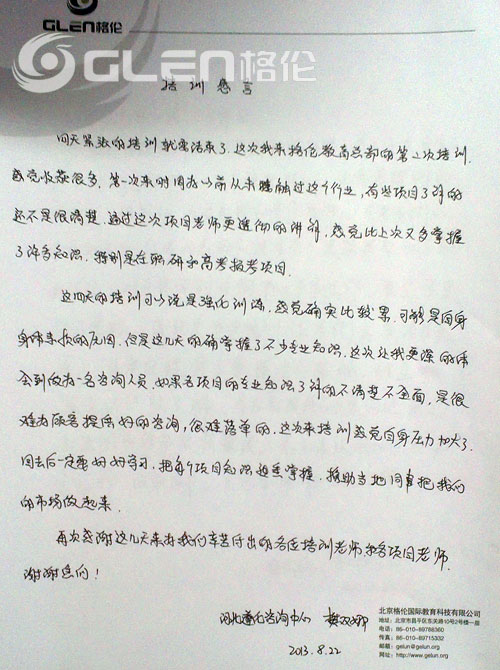 GLEN格伦
GLEN格伦
培训感言
四天紧张的培训就要结束了. 这次我来格伦教育总部的第二次培训.
感觉收获很多. 第一次来时因为以前从未接触过这个行业, 有些项目了解的
还不是很清楚. 通过这次项目老师更透彻的讲解, 感觉比上次又多掌握
了许多知识. 特别是在职研和高考报考项目.
这四天的培训可以说是强化训练, 感觉确实比较累. 可能是因身
身体素质的原因. 但是这几天的确掌握了不少专业知识. 这次让我更深的体
会到做为一名咨询人员. 如果各项目的专业知识了解的不清楚不全面, 是很
难为顾客提供好的咨询, 很难落单的. 这次来培训感觉自身压力加大了.
回去后一定要好好学习. 把每个项目知识都掌握. 协助当地同事把我们
的市场做起来.
再次感谢这几天来为我们辛苦付出的各位培训老师和各项目老师.
谢谢您们!
河北遵化咨询中心
2013.8.22
北京格伦国际教育科技有限公司
地址: 北京市昌平区东关路10号2号楼一层
电话: 86-010-89788360
传真: 86-010-89715332
邮箱: gelun@gelun.org
网址: http://www.gelun.org